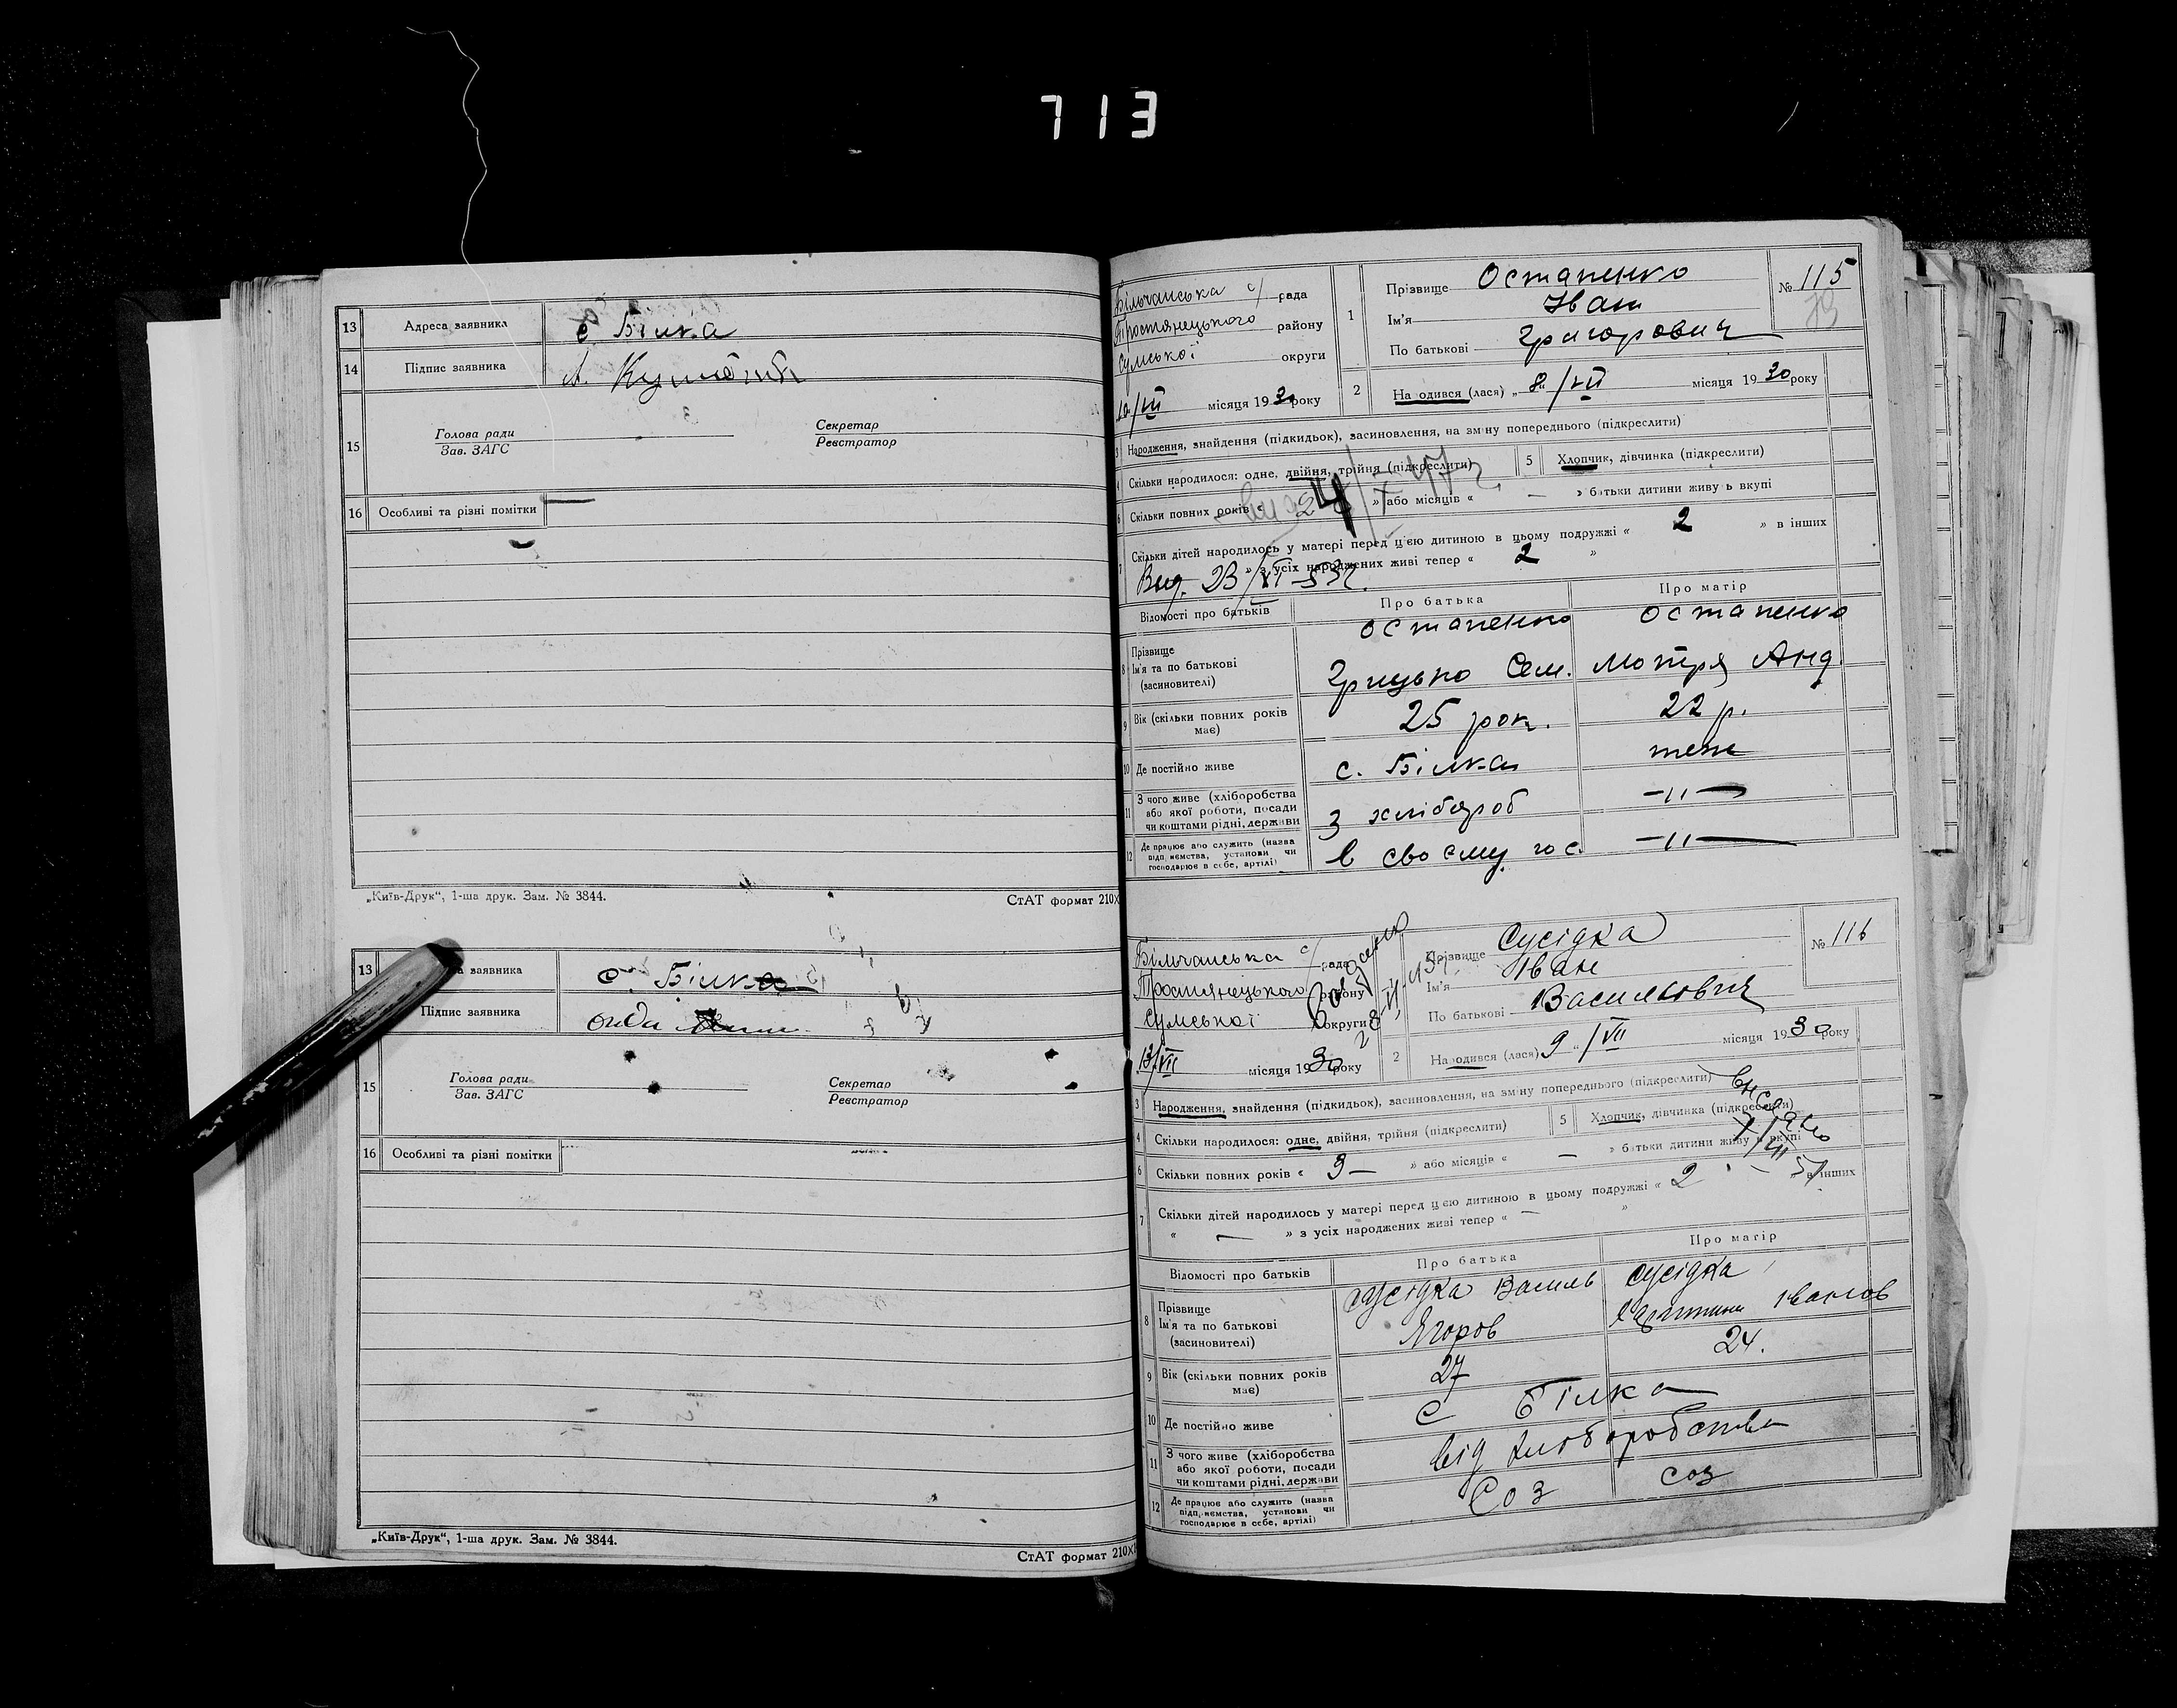 713
13 Адреса заявника с. Білка
14 Підпис заявника
15 Голова ради Секретар
Зав. ЗАГС Реєстратор
16 Особливі та різні помітки —
„Київ-Друк“, 1-ша друк. Зам. № 3844. СтАТ формат 210×
13 заявника с. Білка
Підпис заявника
15 Голова ради Секретар
Зав. ЗАГС Реєстратор
16 Особливі та різні помітки
„Київ-Друк“, 1-ша друк. Зам. № 3844.
СтАТ формат 210×
Більчанська с/рада
Тростянецького району
Сумської округи
10/VII місяця 1930 року
1 Прізвище Остапенко
Ім'я Іван
По батькові Григорович
№ 115
2 На одився (лася) „ 8 “ /VII місяця 1930 року
3 Народження, знайдення (підкидьок), засиновлення, на зміну попереднього (підкреслити)
4 Скільки народилося: одне, двійня, трійня (підкреслити) 5 Хлопчик, дівчинка (підкреслити)
6 Скільки повних років « 4 » або місяців « — » батьки дитини живуть вкупі
7 Скільки дітей народилось у матері перед цією дитиною в цьому подружжі « 2 » в інших
» з усіх народжених живі тепер « 2 »
Вид. 23/XI-
Відомості про батьків Про батька Про матір
8 Прізвище Остапенко Остапенко
Ім'я та по батькові Грицько Сем. Мотря Анд.
(засиновителі)
9 Вік (скільки повних років має) 25 рок. 22 р.
10 Де постійно живе с. Білка теж
11 З чого живе (хліборобства або якої роботи, посади чи коштами рідні, держави з хлібороб —"—
12 Де працює або служить (назва підприємства, установи чи господарює в себе, артілі) в своєму гос. —"—
Більчанська с/рада
Тростянецького району
Сумської округи
13/VII місяця 1930 року
Прізвище Сусідка
Ім'я Іван
По батькові Васильович
№ 116
2 Народився (лася) 9 “ /VII місяця 1930 року
3 Народження, знайдення (підкидьок), засиновлення, на зміну попереднього (підкреслити)
4 Скільки народилося: одне, двійня, трійня (підкреслити) 5 Хлопчик, дівчинка (підкреслити)
6 Скільки повних років « 3 — » або місяців « — » батьки дитини живуть вкупі
7 Скільки дітей народилось у матері перед цією дитиною в цьому подружжі « 2 » в інших
« — » з усіх народжених живі тепер « — »
Відомості про батьків Про батька Про матір
8 Прізвище Сусідка Василь Сусідка
Ім'я та по батькові Ягоров Іванов
(засиновителі)
9 Вік (скільки повних років має) 27 24.
10 Де постійно живе с Білка
11 З чого живе (хліборобства або якої роботи, посади чи коштами рідні, держави від хліборобства
12 Де працює або служить (назва підприємства, установи чи господарює в себе, артілі) Соз соз